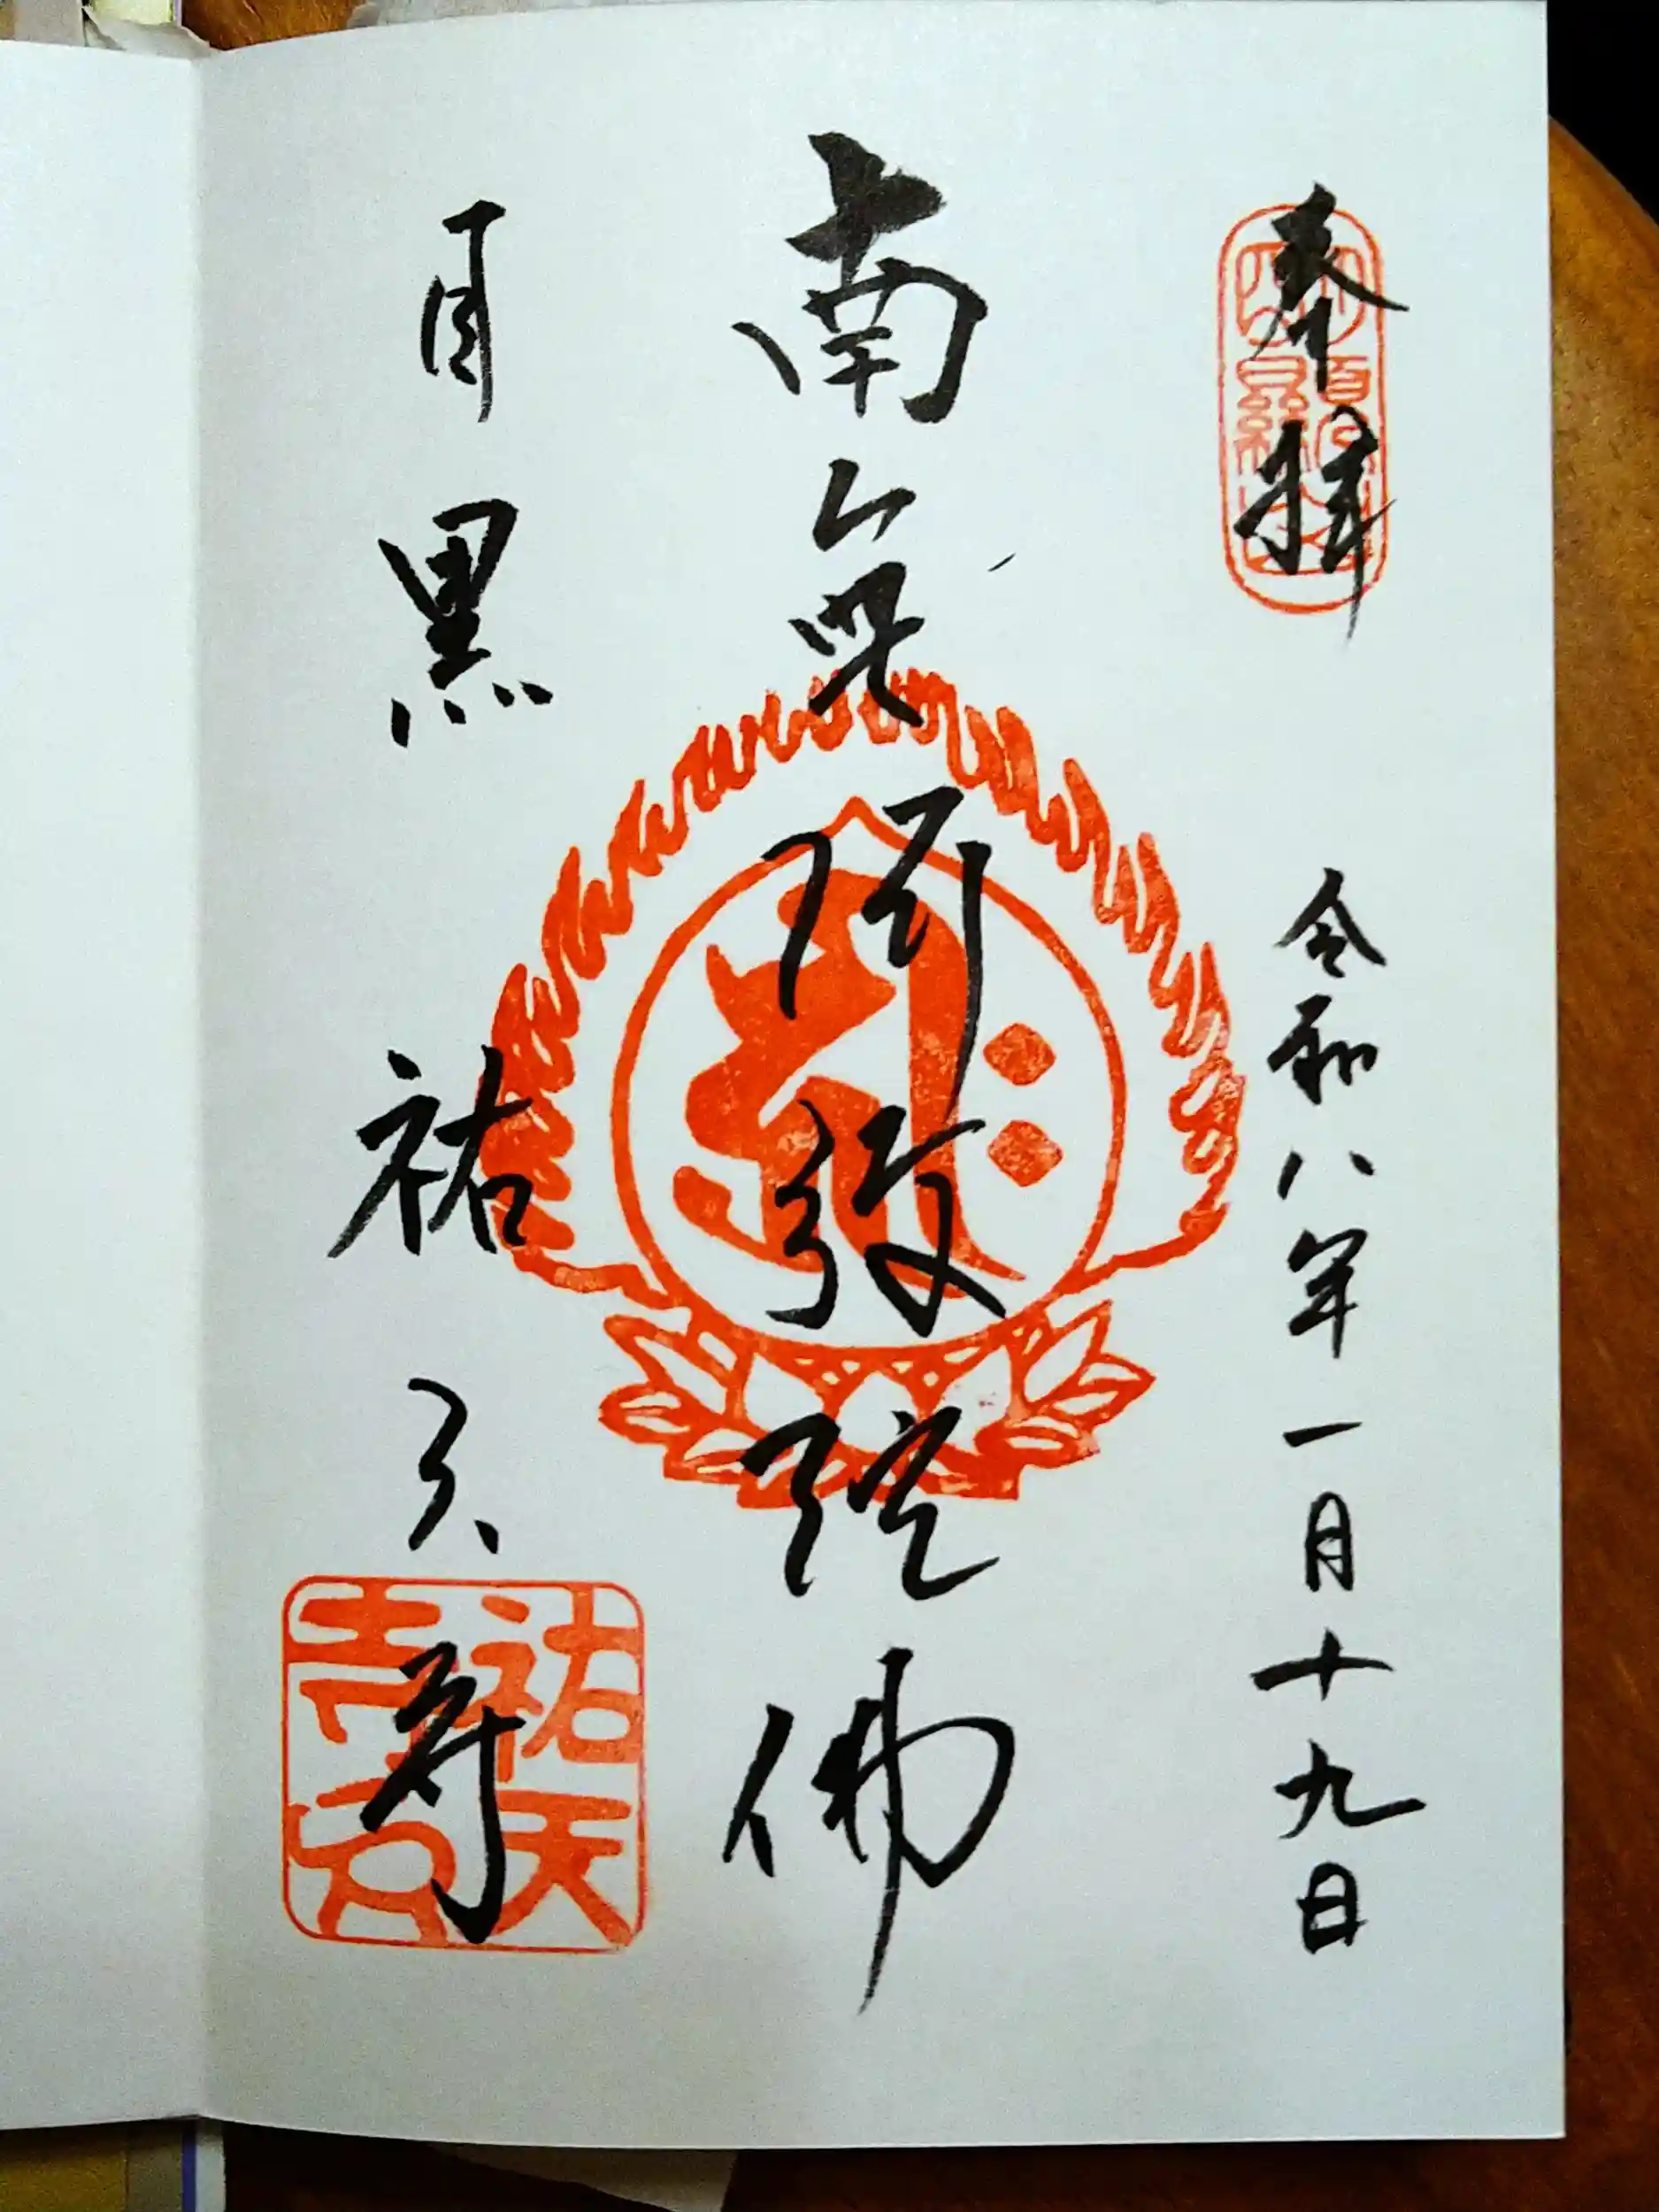 奉拝
令和八年一月十九日
南無阿弥陀佛
目黒
祐天寺
祐天
寺